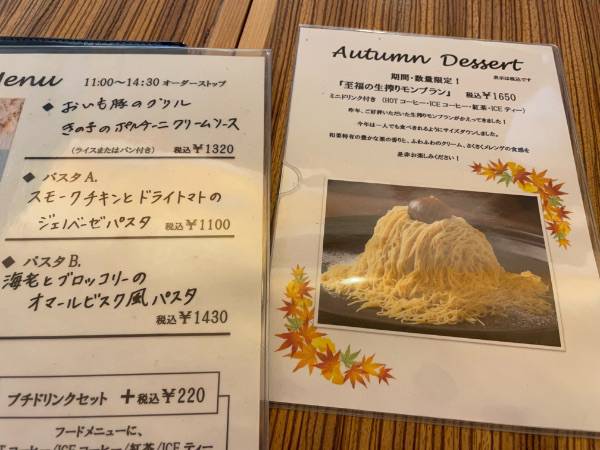 Menu 11:00～14:30 オーダーストップ
◆ おいも豚のグリル
きの子のポルチーニクリームソース
(ライスまたはパン付き) 税込￥1320
◆ パスタ A.
スモークチキンとドライトマトの
ジェノベーゼパスタ 税込￥1100
◆ パスタ B.
海老とブロッコリーの
オマールビスク風パスタ
税込￥1430
プチドリンクセット ＋税込￥220
フードメニューに、
コーヒー/ICEコーヒー/紅茶/ICEティー
Autumn Dessert
期間・数量限定！ 表示は税込です
『至福の生搾りモンブラン』 税込￥1650
ミニドリンク付き (HOTコーヒー・ICEコーヒー・紅茶・ICEティー)
昨年、ご好評いただいた生搾りモンブランがかえってきました！
今年は一人でも食べきれるようにサイズダウンしました。
和栗特有の豊かな栗の香りと、ふわふわのクリーム、さくさくメレンゲの食感を
是非お楽しみください！